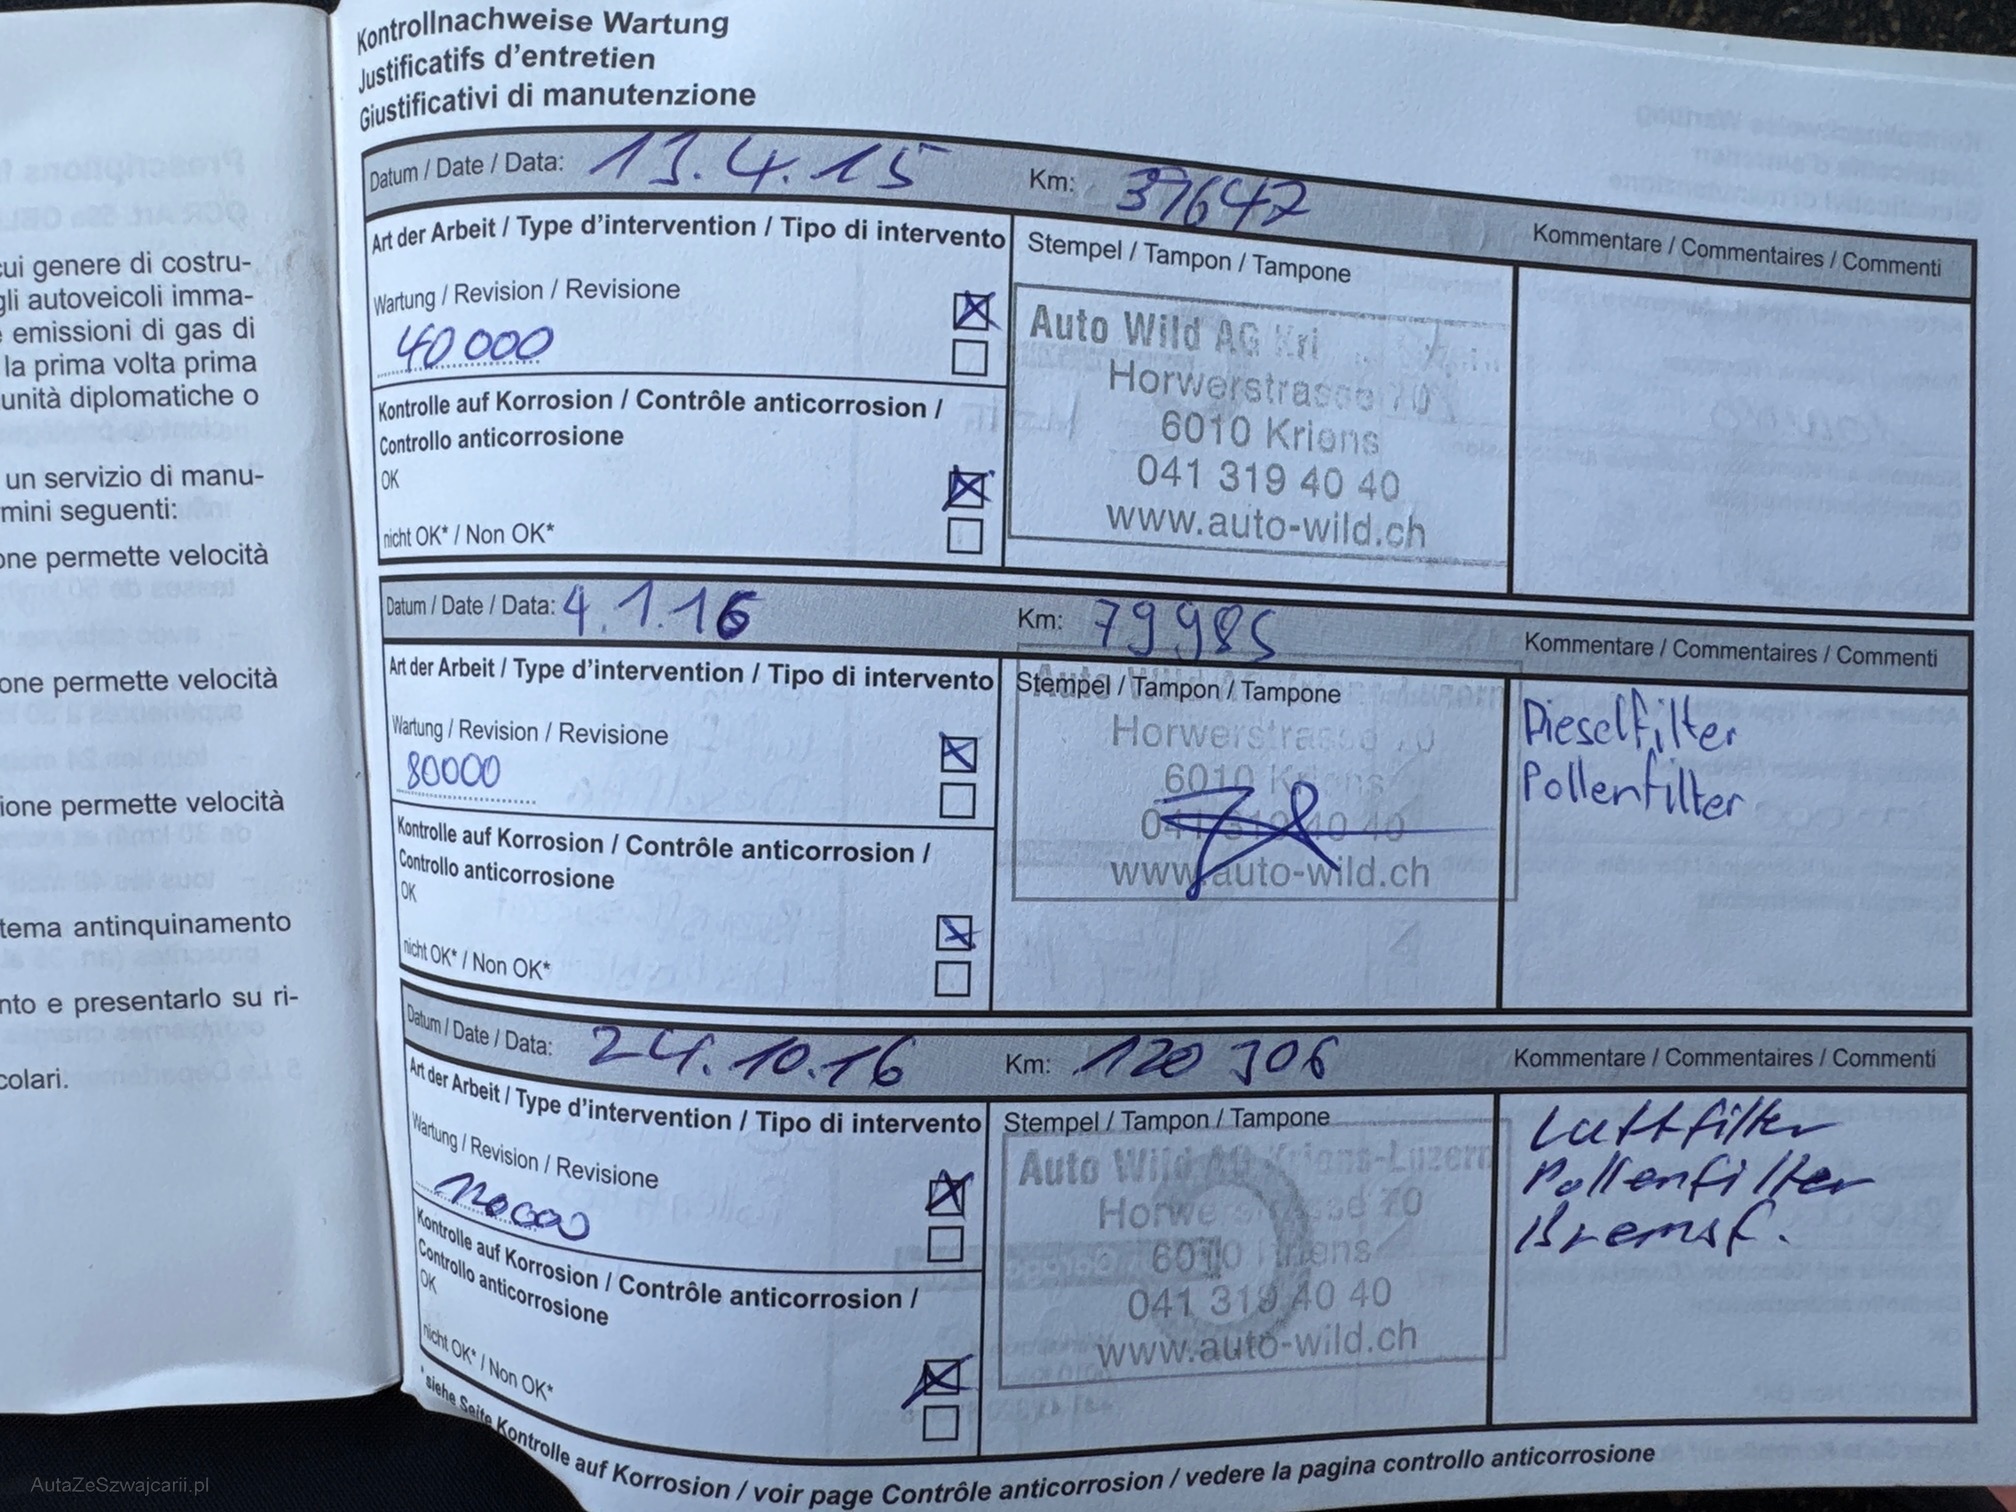 cui genere di costru-
gli autoveicoli imma-
emissioni di gas di
la prima volta prima
unità diplomatiche o
un servizio di manu-
mini seguenti:
one permette velocità
one permette velocità
ione permette velocità
tema antinquinamento
nto e presentarlo su ri-
colari.
Kontrollnachweise Wartung
Justificatifs d'entretien
Giustificativi di manutenzione
Datum / Date / Data: 13.4.15 Km: 37647
Kommentare / Commentaires / Commenti
Art der Arbeit / Type d'intervention / Tipo di intervento
Stempel / Tampon / Tampone
Wartung / Revision / Revisione
40000
Kontrolle auf Korrosion / Contrôle anticorrosion /
Controllo anticorrosione
OK
nicht OK* / Non OK*
Auto Wild AG Kri
Horwerstrasse 70
6010 Kriens
041 319 40 40
www.auto-wild.ch
Datum / Date / Data: 4.1.16 Km: 79985
Kommentare / Commentaires / Commenti
Art der Arbeit / Type d'intervention / Tipo di intervento
Stempel / Tampon / Tampone
Wartung / Revision / Revisione
80000
Kontrolle auf Korrosion / Contrôle anticorrosion /
Controllo anticorrosione
OK
nicht OK* / Non OK*
Auto Wild AG Kriens-Luzern
Horwerstrasse 70
6010 Kriens
041 319 40 40
www.auto-wild.ch
Dieselfilter
Pollenfilter
Datum / Date / Data: 24.10.16 Km: 120306
Kommentare / Commentaires / Commenti
Art der Arbeit / Type d'intervention / Tipo di intervento
Stempel / Tampon / Tampone
Wartung / Revision / Revisione
120000
Kontrolle auf Korrosion / Contrôle anticorrosion /
Controllo anticorrosione
OK
nicht OK* / Non OK*
Auto Wild AG Kriens-Luzern
Horwerstrasse 70
6010 Kriens
041 319 40 40
www.auto-wild.ch
Luftfilter
Pollenfilter
Bremsf.
* siehe Seite Kontrolle auf Korrosion / voir page Contrôle anticorrosion / vedere la pagina controllo anticorrosione
AutaZeSzwajcarii.pl